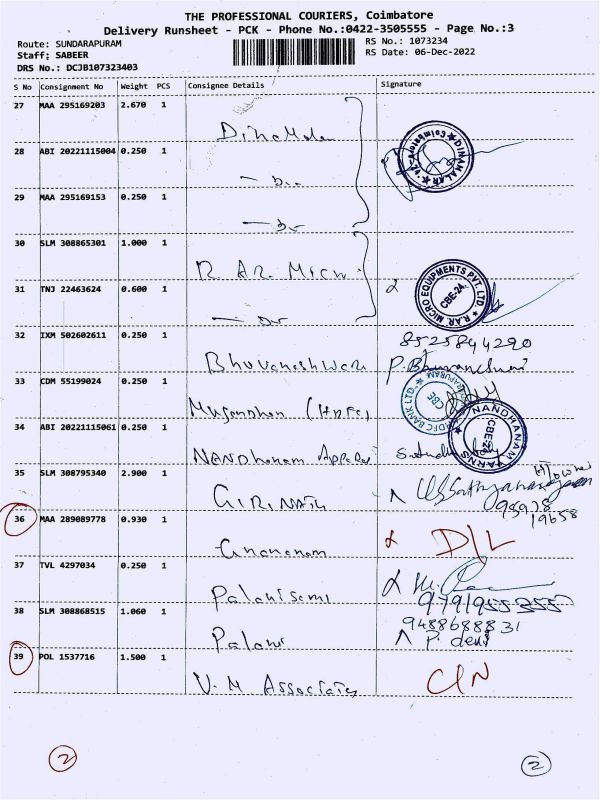 THE PROFESSIONAL COURIERS, Coimbatore
Delivery Runsheet - PCK - Phone No.:0422-3505555 - Page No.:3
Route: SUNDARAPURAM
RS No.: 1073234
Staff: SABEER
RS Date: 06-Dec-2022
DRS No.: DCJB107323403
S No Consignment No Weight PCS Consignee Details Signature
27 MAA 295169203 2.670 1
28 ABI 20221115004 0.250 1
DINAMALAR
29 MAA 295169153 0.250 1
30 SLM 308865301 1.000 1
R AR. Micro
31 TNJ 22463624 0.600 1
R.AR. MICRO EQUIPMENTS PVT. LTD. CBE-24.
32 IXM 502602611 0.250 1
8525844290
Bhuvaneshwari P. Bhuvaneshwari
33 CDM 55199024 0.250 1
(HDFC) HDFC BANK LTD. CBE
34 ABI 20221115061 0.250 1
NANDHANAM YARNS CBE-24
35 SLM 308795340 2.900 1
GIRINATH
36 MAA 289089778 0.930 1
D/L
37 TVL 4297034 0.250 1
Palanisami
38 SLM 308868515 1.060 1
9488688831
Palani P. devi
39 POL 1537716 1.500 1
V. M Associates
2
2